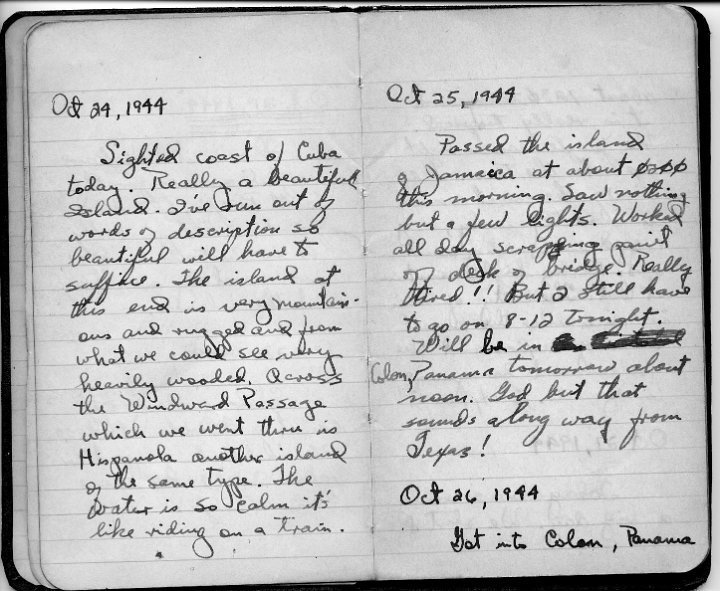 Oct 24, 1944
Sighted coast of Cuba
today. Really a beautiful
Island. I've run out of
words of description so
beautiful will have to
suffice. The island at
this end is very mountain-
ous and rugged and from
what we could see very
heavily wooded. Across
the Windward Passage
which we went thru is
Hispanola another island
of the same type. The
water is so calm it's
like riding on a train.
Oct 25, 1944
Passed the island
of Jamaica at about
this morning. Saw nothing
but a few lights. Worked
all day scrapping paint
off deck of bridge. Really
tired!! But I still have
to go on 8-12 tonight.
Will be in
Colon, Panama tomorrow about
noon. God but that
sounds a long way from
Texas!
Oct 26, 1944
Got into Colon, Panama